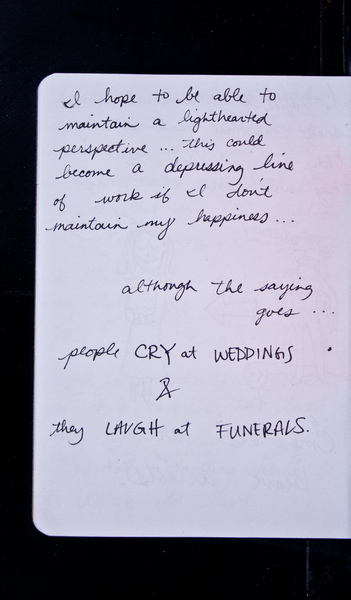 I hope to be able to
maintain a lighthearted
perspective ... this could
become a depressing line
of work if I don't
maintain my happiness ...
although the saying
goes ...
people CRY at WEDDINGS
&
they LAUGH at FUNERALS.